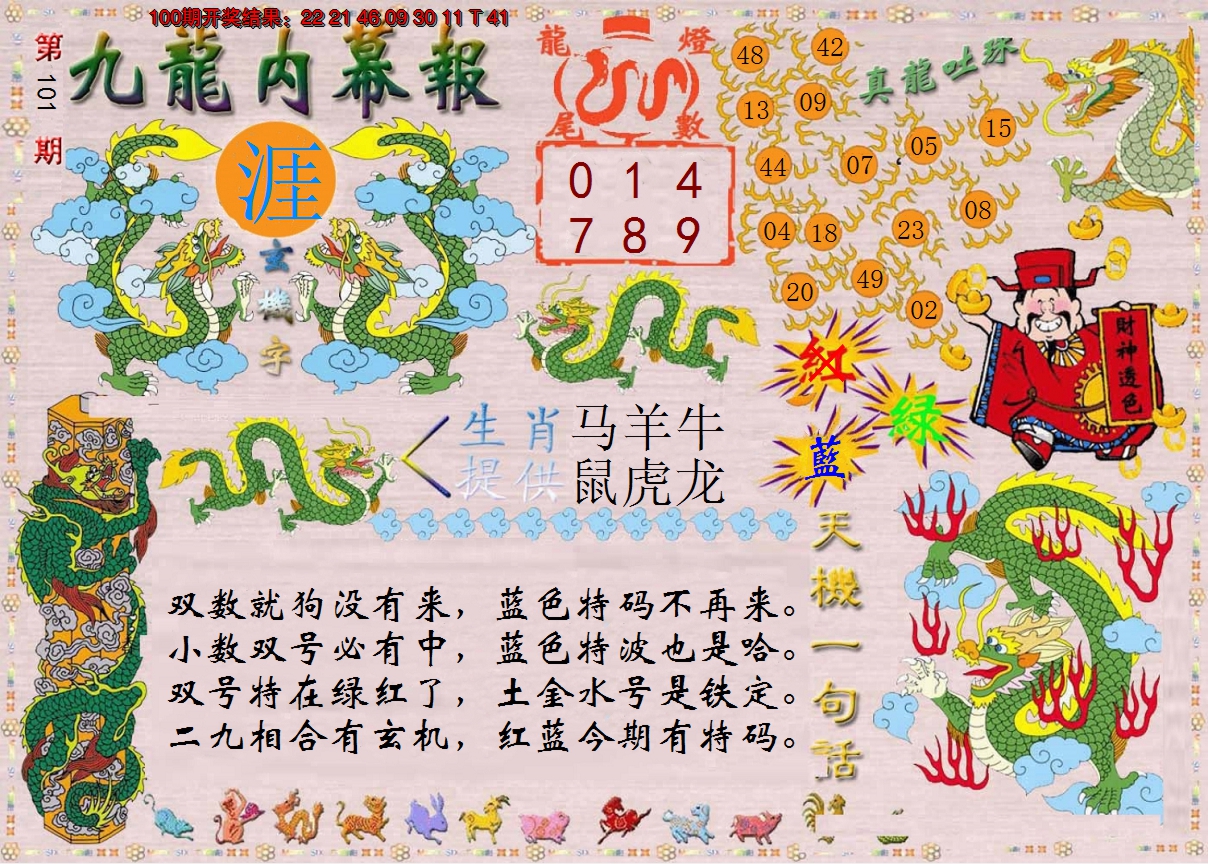 100期开奖结果：22 21 46 09 30 11 T 41
第101期
九龍内幕報
涯
玄機字
龍燈
尾數
0 1 4
7 8 9
真龍吐珠
48 42
13 09
05 15
44 07
04 18 23 08
20 49 02
財神透色
紅
綠
藍
生肖 马羊牛
提供 鼠虎龙
天機一句話
双数就狗没有来，蓝色特码不再来。
小数双号必有中，蓝色特波也是哈。
双号特在绿红了，土金水号是铁定。
二九相合有玄机，红蓝今期有特码。